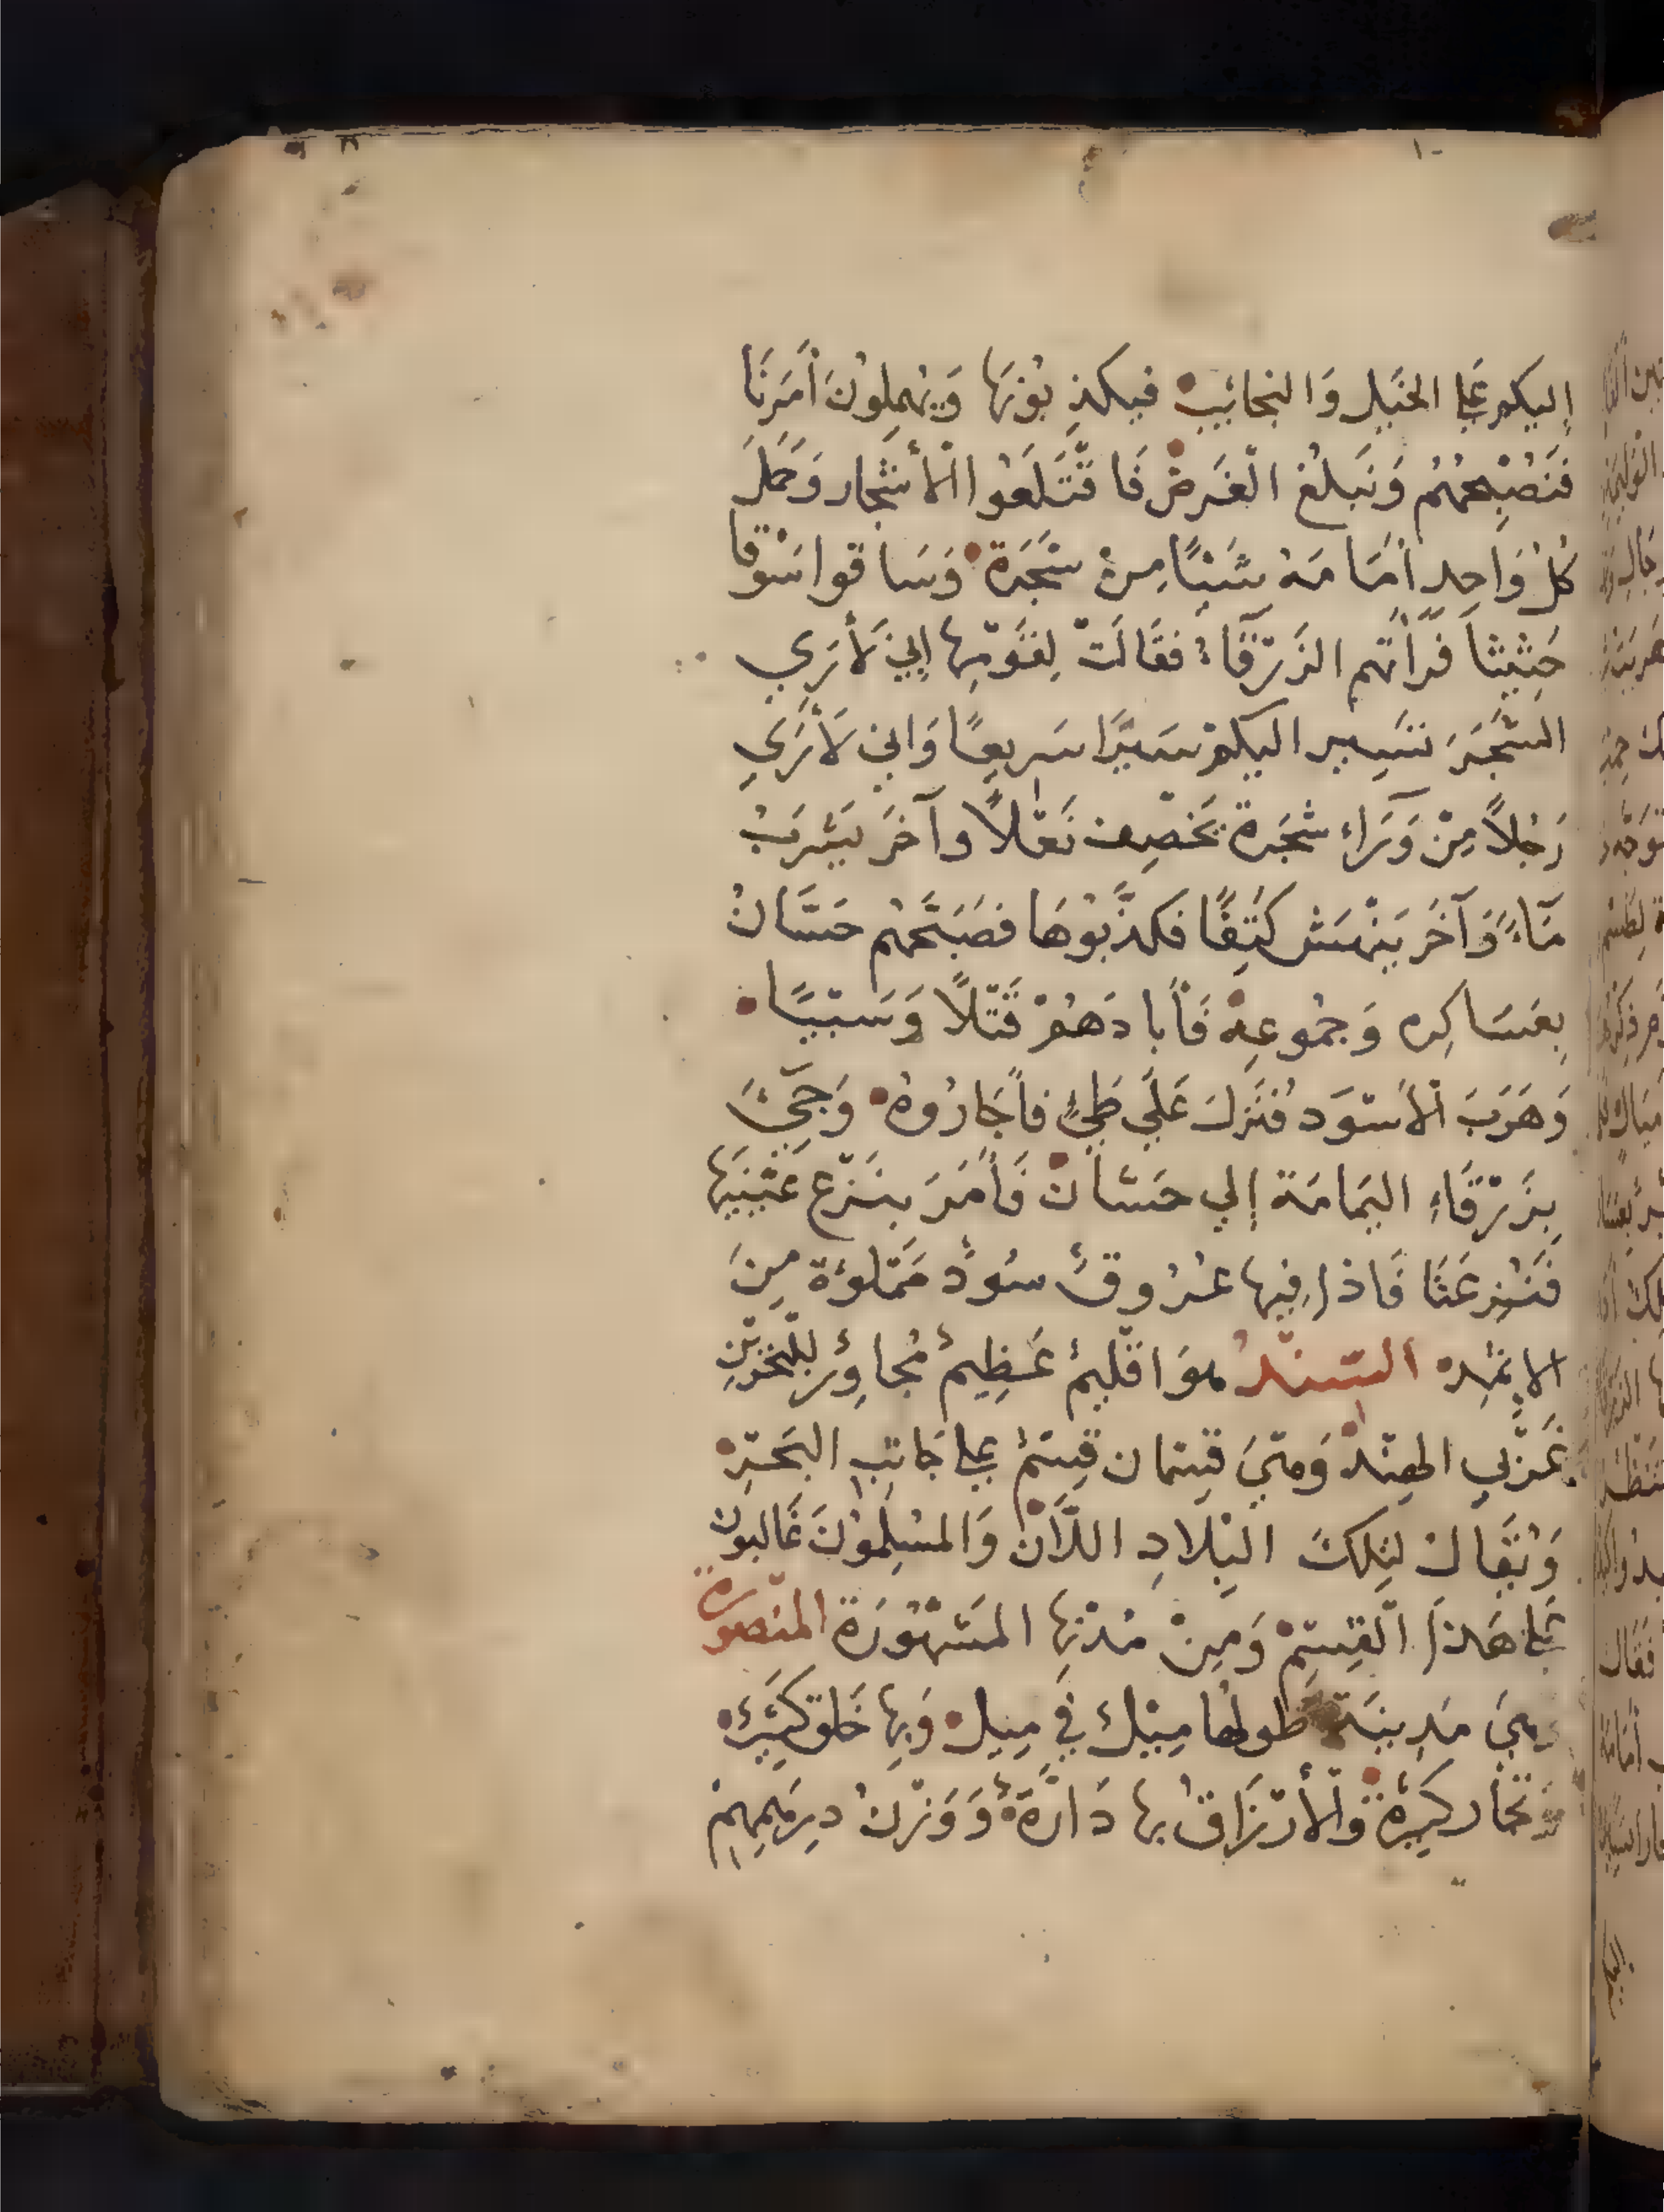 إليكم علي الخيل والنجائب فيكذبونها ويهملون أمرنا
فنصبحهم ونبلغ الغرض فاقتلعوا الأشجار وحمل
كل واحد أمامه شيئا من شجرة وساقوا سوقا
حثيثا فرأتهم الزرقاء فقالت لقومها إني لأري
الشجر تسير اليكم سيرا سريعا واني لأري
رجلا من وراء شجرة يخصف نعلا وآخر يشرب
ماء وآخر ينهش كتفا فكذبوها فصبحهم حسان
بعساكره وجموعه فأبادهم قتلا وسبيا
وهرب الأسود فنزل علي طي فأجاروه وجيء
بزرقاء اليمامة إلي حسان فأمر بنزع عينيها
فنزعتا فاذا فيها عروق سود مملوءة من
الإثمد السند هو اقليم عظيم مجاور للبحرين
غربي الهند وهي قسمان قسم علي جانب البحر
ويقال لتلك البلاد اللان والمسلمون غالبون
علي هذا القسم ومن مدنها المشهورة المنصورة
وهي مدينة طولها ميل في ميل وبها خلق كثير
وتجار كثيرة والأرزاق بها دارة ووزن درهمهم